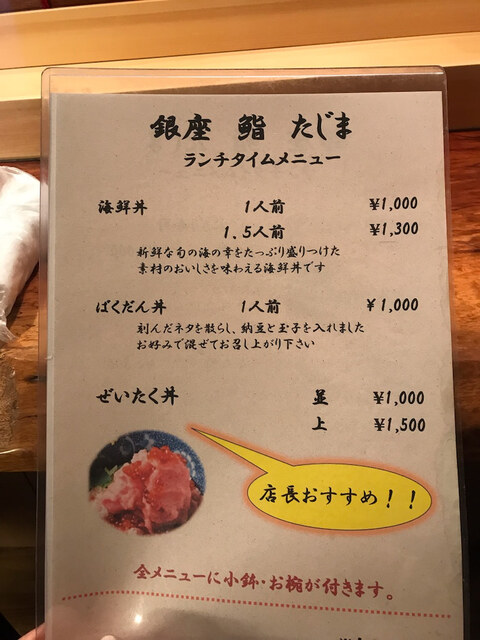 銀座 鮨 たじま
ランチタイムメニュー
海鮮丼 1人前 ¥1,000
1.5人前 ¥1,300
新鮮な旬の海の幸をたっぷり盛りつけた
素材のおいしさを味わえる海鮮丼です
ばくだん丼 1人前 ¥1,000
刻んだネタを散らし、納豆と玉子を入れました
お好みで混ぜてお召し上がり下さい
ぜいたく丼 並 ¥1,000
上 ¥1,500
店長おすすめ！！
全メニューに小鉢・お椀が付きます。